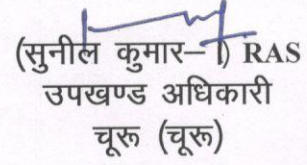 (सुनील कुमार–I) RAS
उपखण्ड अधिकारी
चूरू (चूरू)